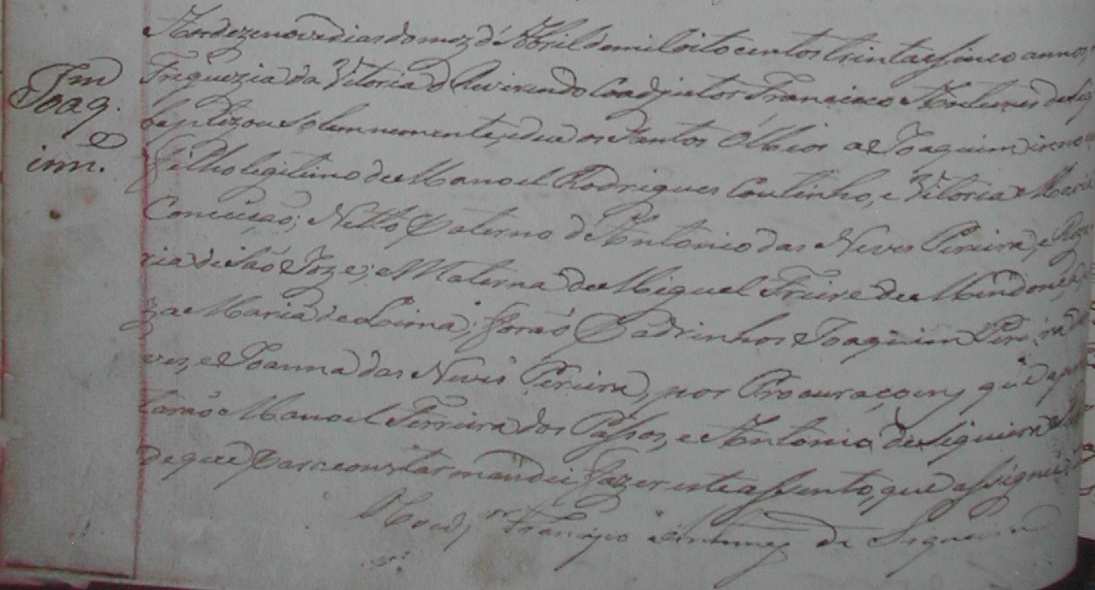 Aos dezenove dias do mez d'Abril de mil oito centos trinta e sinco annos
Im
Joaq.
Freguezia da Vitoria o Reverendo Coadjutor Francisco Antunes de Siq
baptizou solemnemente, e deu os Santos Olhios a Joaquim
inn.
Filho legitimo de Manoel Rodrigues Coutinho, e Vitoria Maria
Conceição; Netto Paterno de Antonio das Neves Pereira, e
ria de São Joze; e Materna de Miguel Freire de Mendonça
za Maria de Lima; forão Padrinhos Joaquim Pereira
ves, e Joanna das Neves Pereira, por Procuraçoens que apre
tarão Manoel Ferreira dos Passos, e Antonio de Siqueira
de que para constar mandei fazer este assento, que assignei
O Coadj.or Francisco Antunes de Siqueira